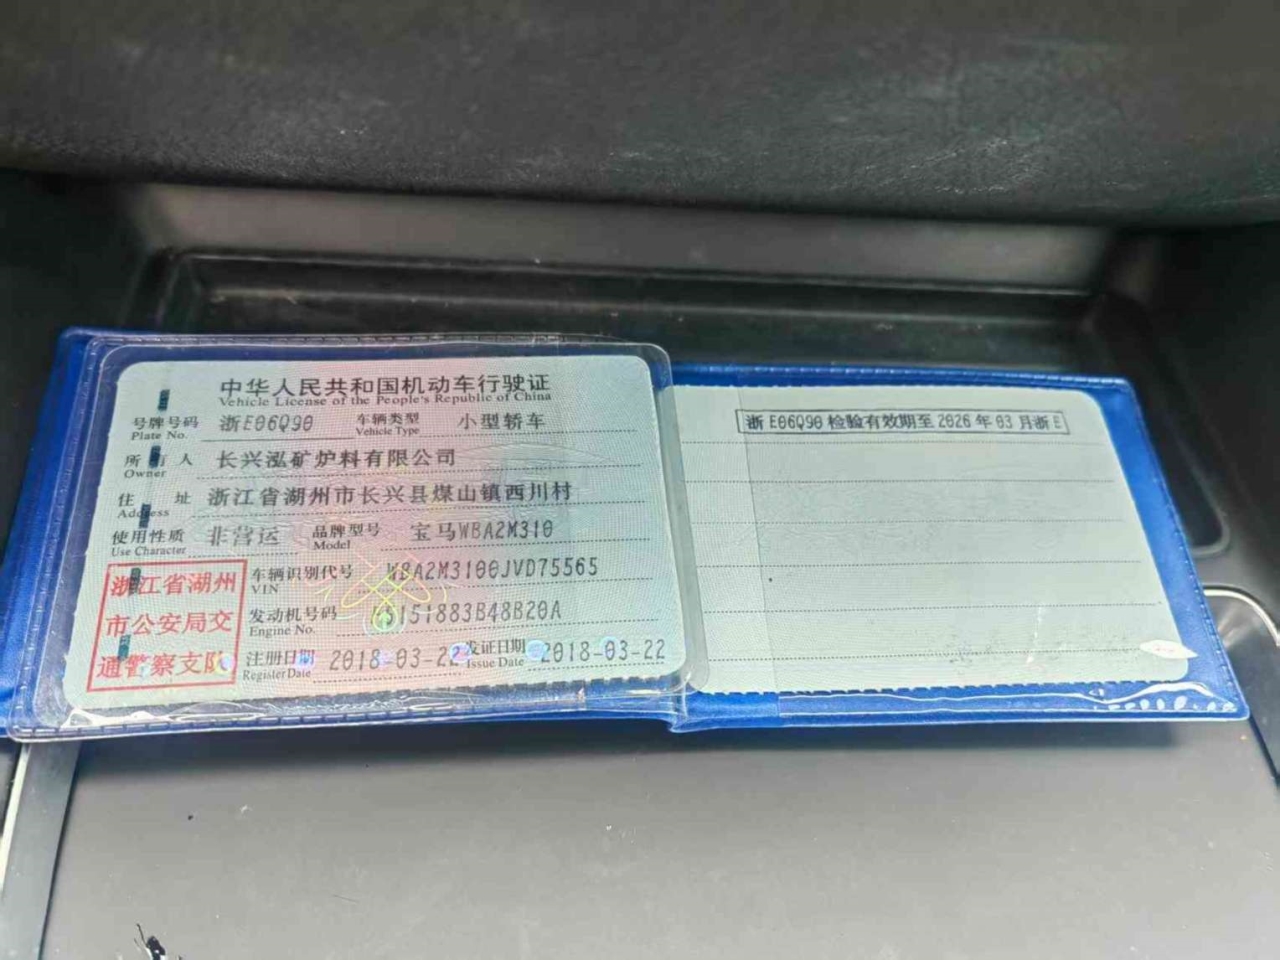 中华人民共和国机动车行驶证
Vehicle License of the People's Republic of China
号牌号码 浙E06Q90 车辆类型 小型轿车
Plate No. Vehicle Type
所有人 长兴泓矿炉料有限公司
Owner
住址 浙江省湖州市长兴县煤山镇西川村
Address
使用性质 非营运 品牌型号 宝马WBA2M310
Use Character Model
车辆识别代号 WBA2M3100JVD75565
VIN
发动机号码 151883B48B20A
Engine No.
注册日期 2018-03-22 发证日期 2018-03-22
Register Date Issue Date
浙江省湖州
市公安局交
通警察支队
浙E06Q90 检验有效期至2026年03月浙E